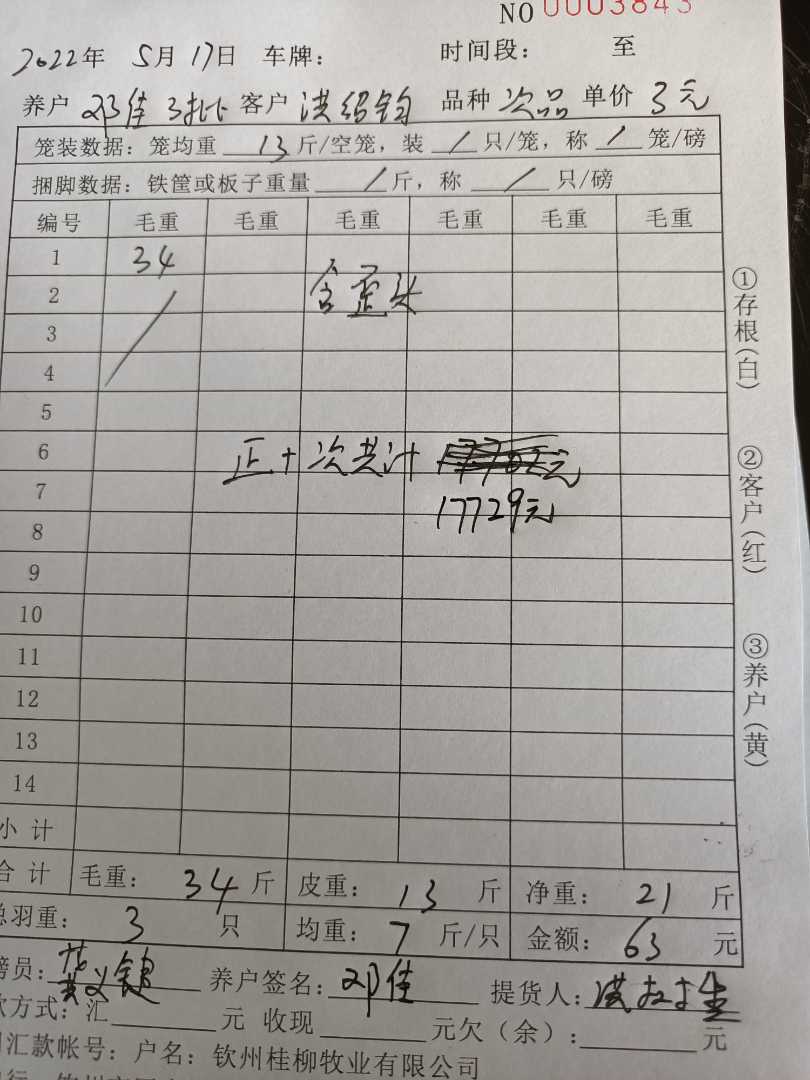 NO 0003843
2022年 5月17日 车牌： 时间段： 至
养户 邓佳3批 客户 洪绍钧 品种 次品 单价 3元
笼装数据：笼均重 13 斤/空笼，装 / 只/笼，称 / 笼/磅
捆脚数据：铁筐或板子重量 / 斤，称 / 只/磅
编号 毛重 毛重 毛重 毛重 毛重 毛重
1 34
2 含歪头
3
4
5
6 正+次共计
7 17729元
8
9
10
11
12
13
14
小计
合计 毛重： 34 斤 皮重： 13 斤 净重： 21 斤
总羽重： 3 只 均重： 7 斤/只 金额： 63 元
磅员： 黄义键 养户签名： 邓佳 提货人： 洪
款方式：汇 元 收现 元欠（余）： 元
汇款帐号：户名：钦州桂柳牧业有限公司
①存根（白）
②客户（红）
③养户（黄）